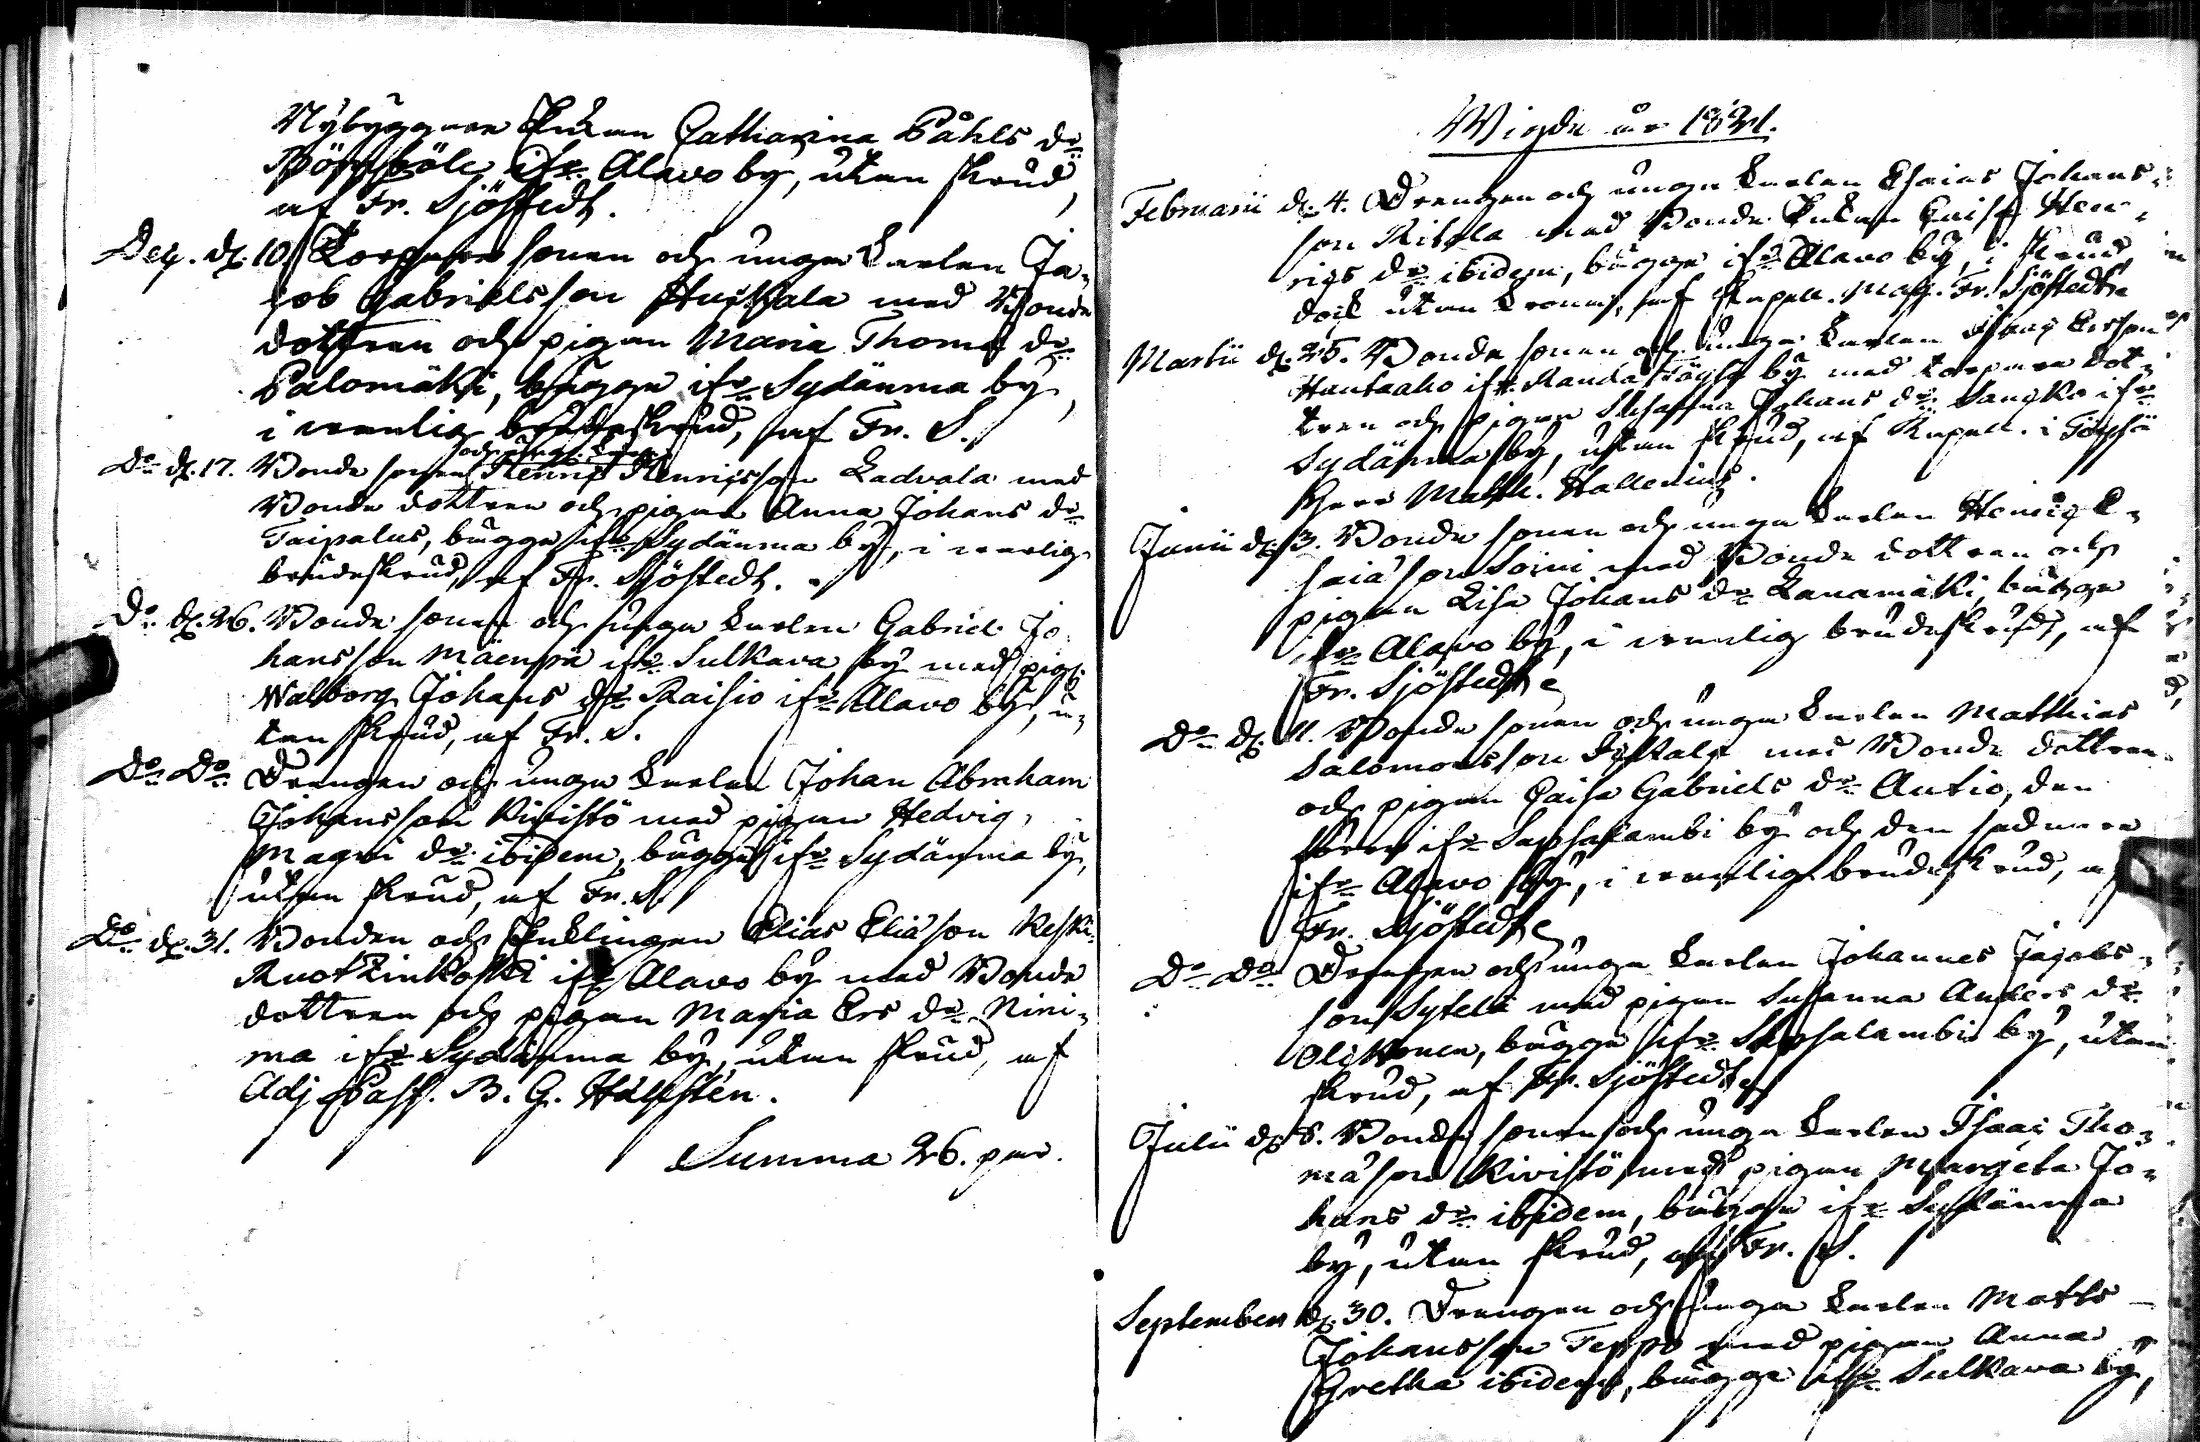 Nybyggare Enkan Catharina Påhls dr
Börsböle, ifr. Alavo by, utan skrud,
af Fr. Sjöstedt.
Dec. d. 10. Torpare sonen och unga karlen Ja-
cob Gabrielsson Huhtala med Bonde
dottren och pigan Maria Thomæ dr
Palomäki, bägge ifr Sydänma by,
i vanlig brudeskrud, af Fr. S.
Do d. 17. Bonde sonen och unga karlen Henric Henricsson Ladvala med
Bonde dottren och pigan Anna Johans dr
Taipalus, bägge ifr Sydänma by, i vanlig
brudeskrud, af Fr. Sjöstedt.
Do d. 26. Bonde sonen och unga karlen Gabriel Jo
hansson Mäenpä ifr Sulkava by med pig.
Walborg Johans dr Raisio ifr Alavo by, u-
tan skrud, af Fr. S.
Do Do Drengen och unga karlen Johan Abraham
Johansson Kivistö med pigan Hedvig
Magni dr ibidem, bägge ifr Sydänma by,
utan skrud, af Fr. S.
Do d. 31. Bonden och Enklingen Elias Eliæson Keski-
Ruotzinkoski ifr Alavo by med Bonde
dottren och pigan Maria Ers dr Nini-
ma ifr Sydänma by, utan skrud, af
Adj. Past. B. G. Hallstén.
Summa 26. par.
Wigde år 1821.
Februarii d. 4. Drengen och unga karlen Esaias Johans-
son Ritola med Bonde Enkan Caisa Hen-
rics dr ibidem, bägge ifr Alavo by, i skrud,
dock utan krona, af Kapell. Mag. Fr. Sjöstedt
Martii d. 25. Bonde sonen och unga karlen Isaac Ersson
Hautaaho ifr. Randa Töysä by med torpare dot-
tren och pigan Susanna Johans dr Sangko ifr
Sydänma by, utan skrud, af Kapell. i Töysä
Herr Matth. Hallenius.
Junii d. 3. Bonde sonen och unga karlen Henric E-
saiæson Soini med Bonde dottren och
pigan Lisa Johans dr Lanamäki, bägge
ifr Alavo by, i vanlig brudeskrud, af
Fr. Sjöstedt
Do d. 11. Bonde sonen och unga karlen Matthias
Salomonsson med Bonde dottren
och pigan Caisa Gabriels dr Autio, den
förra ifr Sapsalambi by och den sednare
ifr Alavo by, i vanlig brudeskrud, af
Fr. Sjöstedt
Do Do Drengen och unga karlen Johannes Jacobs-
son Sytelä med pigan Susanna Anders dr
Olikonen, bägge ifr Sapsalambi by, utan
skrud, af Fr. Sjöstedt
Julii d. 8. Bonde sonen och unga karlen Isaac Tho-
mæson Kivistö med pigan Margeta Jo-
hans dr ibidem, bägge ifr Sydänma
by, utan skrud, af Fr. S.
September d. 30. Drengen och unga karlen Matts
Johansson Teppo med pigan Anna
Gretha ibidem, bägge ifr Sulkava by,